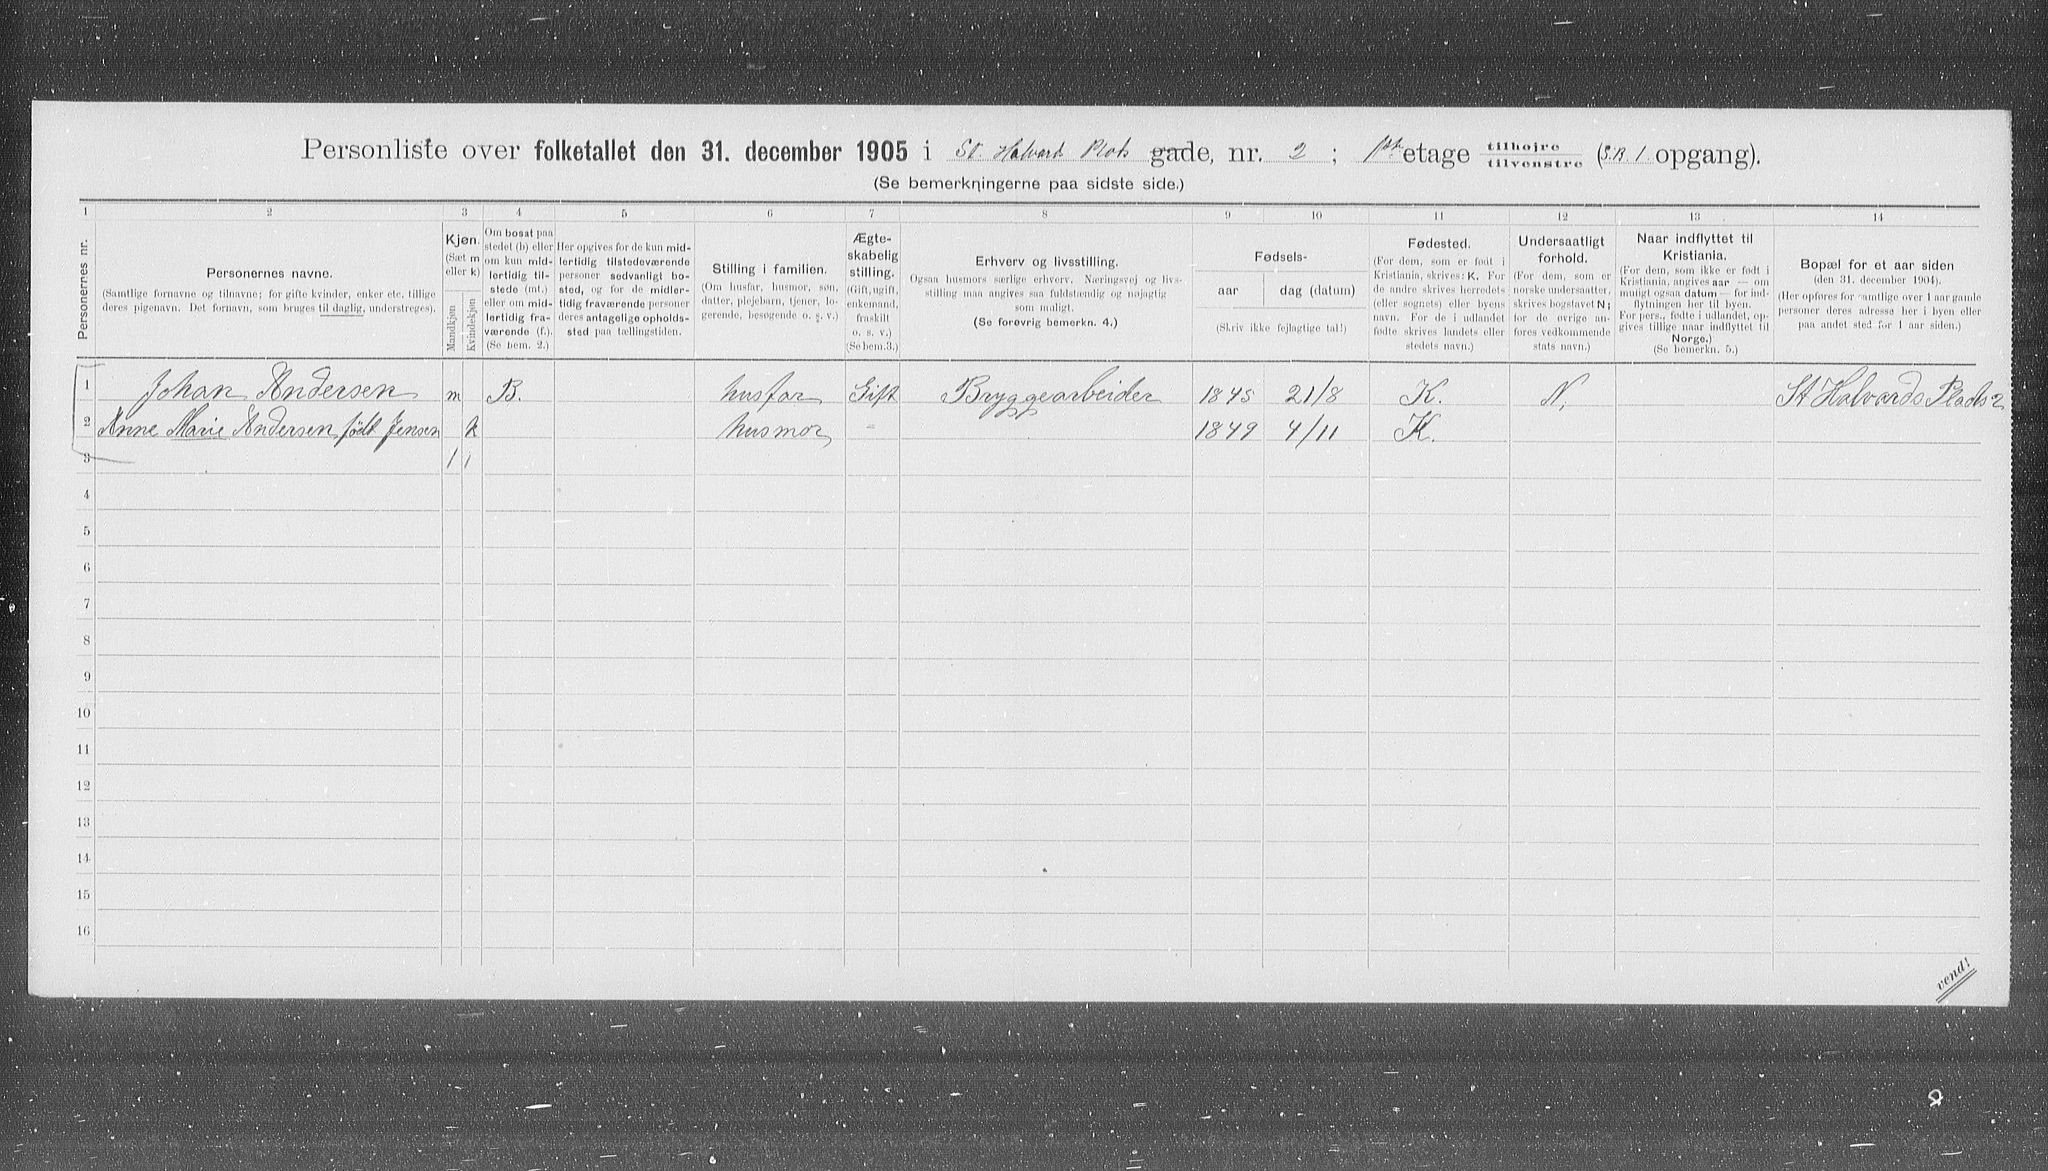 Personliste over folketallet den 31. december 1905 i St Halvard Plads gade, nr. 2 ; 1ste etage tilhøjre tilvenstre (S.B. 1 opgang).
(Se bemerkningerne paa sidste side.)
1 2 3 4 5 6 7 8 9 10 11 12 13 14
Personernes nr.
Personernes navne.
(Samtlige fornavne og tilnavne; for gifte kvinder, enker etc. tillige
deres pigenavn. Det fornavn, som bruges til daglig, understreges).
Kjøn.
(Sæt m
eller k)
Mandkjøn
Kvindekjøn
Om bosat paa
stedet (b) eller
om kun mid-
lertidig til-
stede (mt.)
eller om mid-
lertidig fra-
værende (f.).
(Se bem. 2.)
Her opgives for de kun mid-
lertidig tilstedeværende
personer sedvanligt bo-
sted, og for de midler-
tidig fraværende personer
deres antagelige opholds-
sted paa tællingstiden.
Stilling i familien.
(Om husfar, husmor, søn,
datter, plejebarn, tjener, lo-
gerende, besøgende o. s. v.)
Ægte-
skabelig
stilling.
(Gift, ugift,
enkemand,
fraskilt
o. s. v.)
(Se bem. 3.)
Erhverv og livsstilling.
Ogsaa husmors særlige erhverv. Næringsvej og livs-
stilling maa angives saa fuldstændig og nøjagtig
som muligt.
(Se forøvrig bemerkn. 4.)
Fødsels-
aar
dag (datum)
(Skriv ikke fejlagtige tal!)
Fødested.
(For dem, som er født i
Kristiania, skrives: K. For
de andre skrives herredets
(eller sognets) eller byens
navn. For de i udlandet
fødte skrives landets eller
stedets navn.)
Undersaatligt
forhold.
(For dem, som er
norske undersaatter,
skrives bogstavet N;
for de øvrige an-
føres vedkommende
stats navn.)
Naar indflyttet til
Kristiania.
(For dem, som ikke er født i
Kristiania, angives aar — om
muligt ogsaa datum — for ind-
flytningen her til byen.
For pers., fødte i udlandet, op-
gives tillige naar indflyttet til
Norge.)
(Se bemerkn. 5.)
Bopæl for et aar siden
(den 31. december 1904).
(Her opføres for samtlige over 1 aar gamle
personer deres adresse her i byen eller
paa andet sted for 1 aar siden.)
1 Johan Andersen m B. husfar Gift Bryggearbeider 1845 21/8 K. N. St Halvards Plads 2
2 Anne Marie Andersen født Jensen k husmor " 1849 4/11 K.
3 1 1
4
5
6
7
8
9
10
11
12
13
14
15
16
vend!
8